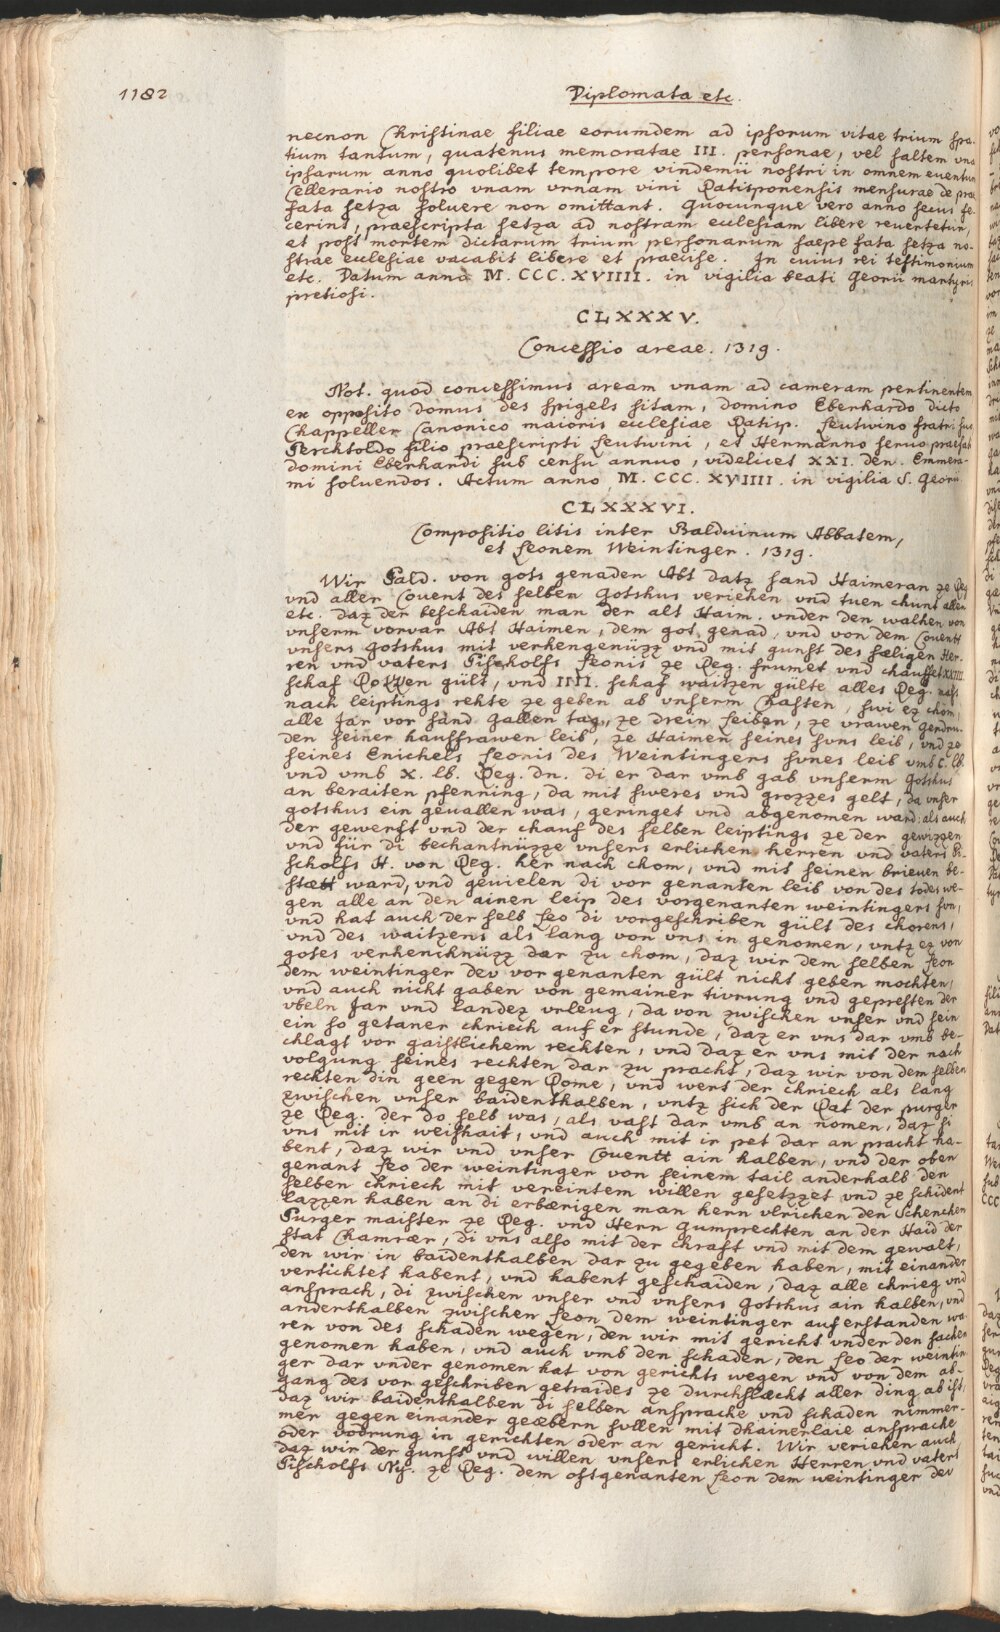 1182
Diplomata etc.
necnon Christinae filiae eorumdem ad ipsorum vitae trium spa-
tium tantum, quatenus memoratae III. personae, vel saltem vna
ipsarum anno quolibet tempore vindemii nostri in omnem euentum
Cellerario nostro vnam vrnam vini Ratisponensis mensurae de prae
fata setza soluere non omittant. Quocunque vero anno secus fe-
cerint, praescripta setza ad nostram ecclesiam libere reuertetur,
et post mortem dictarum trium personarum saepe fata setza no-
strae ecclesiae vacabit libere et praecise. In cuius rei testimonium
etc. Datum anno M. CCC. XVIIII. in vigilia beati Georii martyris
pretiosi.
CLXXXV.
Concessio areae. 1319.
Not. quod concessimus aream vnam ad cameram pertinentem
ex opposito domus des Spigels sitam, domino Eberhardo dicto
Chappeller Canonico maioris ecclesiae Ratisp. Leutwino fratri suo
Perchtoldo filio praescripti Leutwini, et Hermanno seruo praefati
domini Eberhardi sub censu annuo, videlicet XXI. den. Emmera-
mi soluendos. Actum anno M. CCC. XVIIII. in vigilia S. Georii.
CLXXXVI.
Compositio litis inter Balduinum Abbatem,
et Leonem Weintinger. 1319.
Wir Pald. von gots genaden Abt datz sand Haimeran ze Reg
vnd aller Couent des selben Gotshus veriehen vnd tuen chunt allen
etc. daz der beschaiden man der alt Haim. vnder den walhen von
vnserm vorvar Abt Haimen, dem got genad, vnd von dem Couentt
vnsers Gotshus mit verhengenüzz vnd mit gunst des sæligen Her-
ren vnd vaters Pischolfs Leonis ze Reg. frumet vnd chauffet XXIIII.
schaf Rokken gült, vnd IIII. schaf waitzen gülte alles Reg. mass
nach leiptings rehte ze geben ab vnserm Chasten, swi ez chom,
alle Jar vor sand Gallen tag, ze drein leiben, ze vrawen Gedru-
den seiner hausfrawen leib, ze Haimen seines suns leib, vnd ze
seines Enichels Leonis des Weintingers sunes leib vmb C. lb.
vnd vmb X. lb. Reg. dn. di er dar vmb gab vnserm Gotshus
an beraiten pfenning, da mit sweres vnd grozzes gelt, da vnser
gotshus ein geuallen was, geringet vnd abgenomen ward: als auch
der gewerft vnd der chauf des selben leiptings ze der gewizzen
vnd für di bechantnüzze vnsers erlichen herren vnd vaters Pi-
scholfs H. von Reg. her nach chom, vnd mit seinen brieuen be-
stætt ward, vnd geuielen di vor genanten leib von des todes we-
gen alle an den ainen leip des vorgenanten weintingers sun,
vnd hat auch der selb Leo di vorgeschriben gült des chorens,
vnd des waitzens als lang von vns in genomen, vntz ez von
gotes verhenchnüzz dar zu chom, daz wir dem selben Leon
dem weintinger dev vor genanten gült nicht geben mochten,
vnd auch nicht gaben von gemainer tivrung vnd gepresten der
vbeln Jar vnd Landez vrleug, da von zwischen vnser vnd sein
ein so getaner chriech auf er stunde, daz er vns dar vmb be-
chlagt vor gaistlichem rechten, vnd daz er vns mit der nach
volgung seines rechten dar zu pracht, daz wir von dem selben
rechten din geen gegen Rome, vnd wert der chriech als lang
zwischen vnser baidenthalben, vntz sich der Rat der purger
ze Reg. der do selb was, als vast dar vmb an nomen, daz si
vns mit ir weishait, vnd auch mit ir pet dar an pracht ha-
bent, daz wir vnd vnser Couentt ain halben, vnd der oben
genant Leo der weintinger von seinem tail anderhalb den
selben chriech mit vereintem willen gesetzzet vnd ze schident
lazzen haben an di erbærigen man hern vlrichen den Schenchen
Purger maister ze Reg. vnd Hern Gumprechten an der Haid der
stat Chamrær, di vns also mit der chraft vnd mit dem gewalt,
den wir in baidenthalben dar zu gegeben haben, mit einander
verlichtet habent, vnd habent geschaiden, daz alle chrieg vnd
ansprach, di zwischen vnser vnd vnsers Gotshus ain halben, vnd
anderthalben zwischen Leon dem weintinger auf erstanden wa-
ren von des schaden wegen, den wir mit gericht vnder den sachen
genomen haben, vnd auch vmb den schaden, den Leo der weintin-
ger dar vnder genomen hat von gerichts wegen vnd von dem ab-
gang des vor geschriben getraides ze durchslæcht aller ding ab ist,
daz wir baidenthalben di selben ansprache vnd schaden nimmer-
mer gegen einander geæbern sullen mit dhainerlaie ansprache
oder vodrung in gerichten oder an gericht. Wir veriehen auch
daz wir der gunst vnd willen vnsers erlichen Herren vnd vaters
Pischolfs Nyc. ze Reg. dem oftgenanten Leon dem weintinger dev